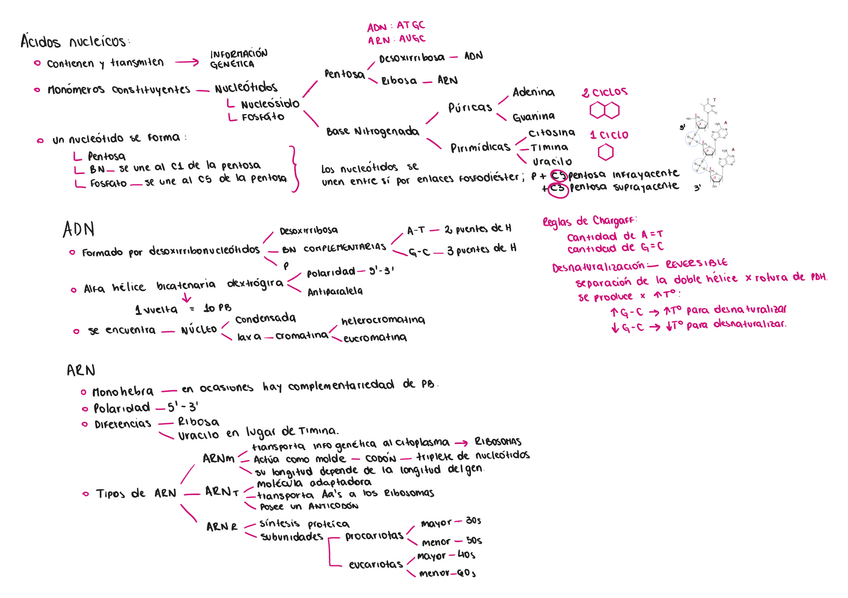 ADN: ATGC
ARN: AUGC
Ácidos nucleicos:
Contienen y transmiten → INFORMACIÓN GENÉTICA
Monómeros constituyentes — Nucleótidos
Nucleósido
Fosfato
Pentosa
Desoxirribosa — ADN
Ribosa — ARN
Base Nitrogenada
Púricas
Adenina
Guanina
2 CICLOS
Pirimídicas
Citosina
Timina
Uracilo
1 CICLO
Un nucleótido se forma:
Pentosa
BN — se une al C1 de la pentosa
Fosfato — se une al C5 de la pentosa
Los nucleótidos se
unen entre sí por enlaces fosfodiéster; P + C3 pentosa infrayacente
+ C5 pentosa suprayacente
5'
3'
ADN
Formado por desoxirribonucleótidos
Desoxirribosa
BN COMPLEMENTARIAS
A-T — 2 puentes de H
G-C — 3 puentes de H
P
Alfa hélice bicatenaria dextrógira
Polaridad — 5'-3'
Antiparalela
1 vuelta = 10 PB
Se encuentra — NÚCLEO
Condensada
laxa — cromatina
heterocromatina
eucromatina
Reglas de Chargaff:
Cantidad de A=T
cantidad de G=C
Desnaturalización — REVERSIBLE
separación de la doble hélice x rotura de PDH.
se produce x ↑Tº:
↑G-C → ↑Tº para desnaturalizar
↓G-C → ↓Tº para desnaturalizar.
ARN
Monohebra — en ocasiones hay complementariedad de PB.
Polaridad — 5'-3'
Diferencias — Ribosa
Uracilo en lugar de Timina.
Tipos de ARN
ARNm
transporta info genética al citoplasma → RIBOSOMAS
Actúa como molde — CODÓN — triplete de nucleótidos
su longitud depende de la longitud del gen
ARNT
molécula adaptadora
transporta Aa's a los Ribosomas
Posee un ANTICODÓN
ARNR
síntesis proteica
subunidades
procariotas
mayor — 30s
menor — 50s
eucariotas
mayor — 40s
menor — 60s